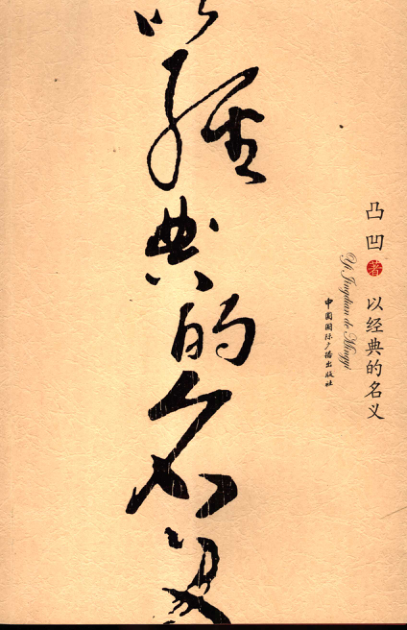 以經典的名义
凸凹 著 以经典的名义
Yi Jingdian de Mingyi
中国国际广播出版社